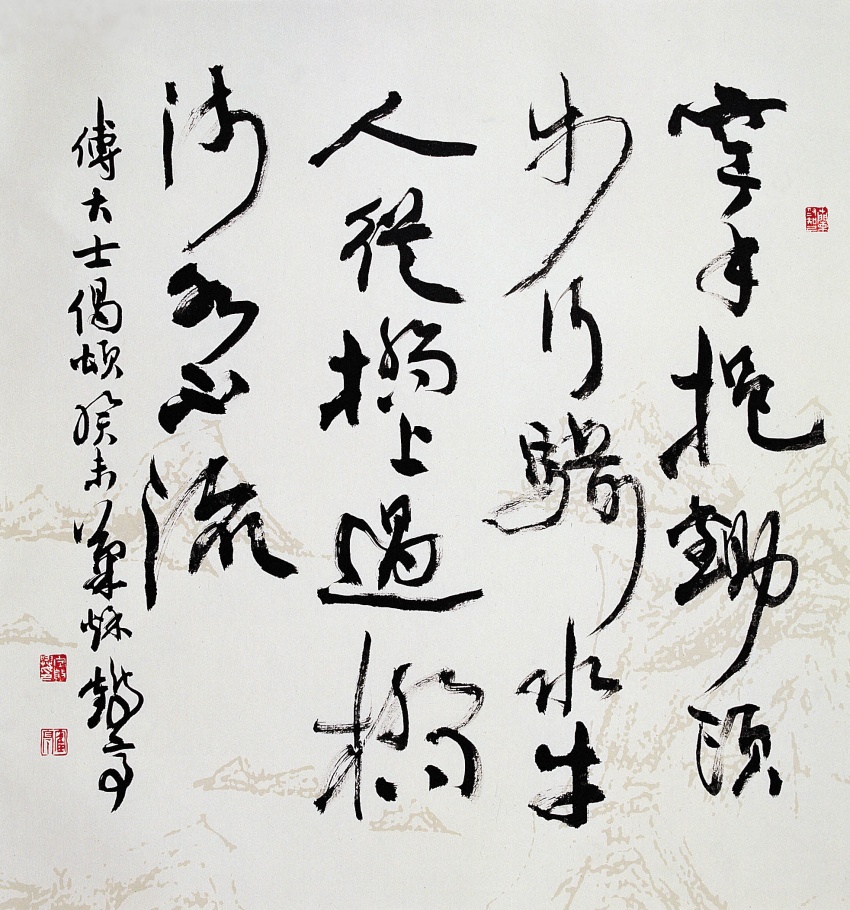 空手把鋤頭
步行騎水牛
人從橋上過橋
流水不流
傅大士偈頌癸未